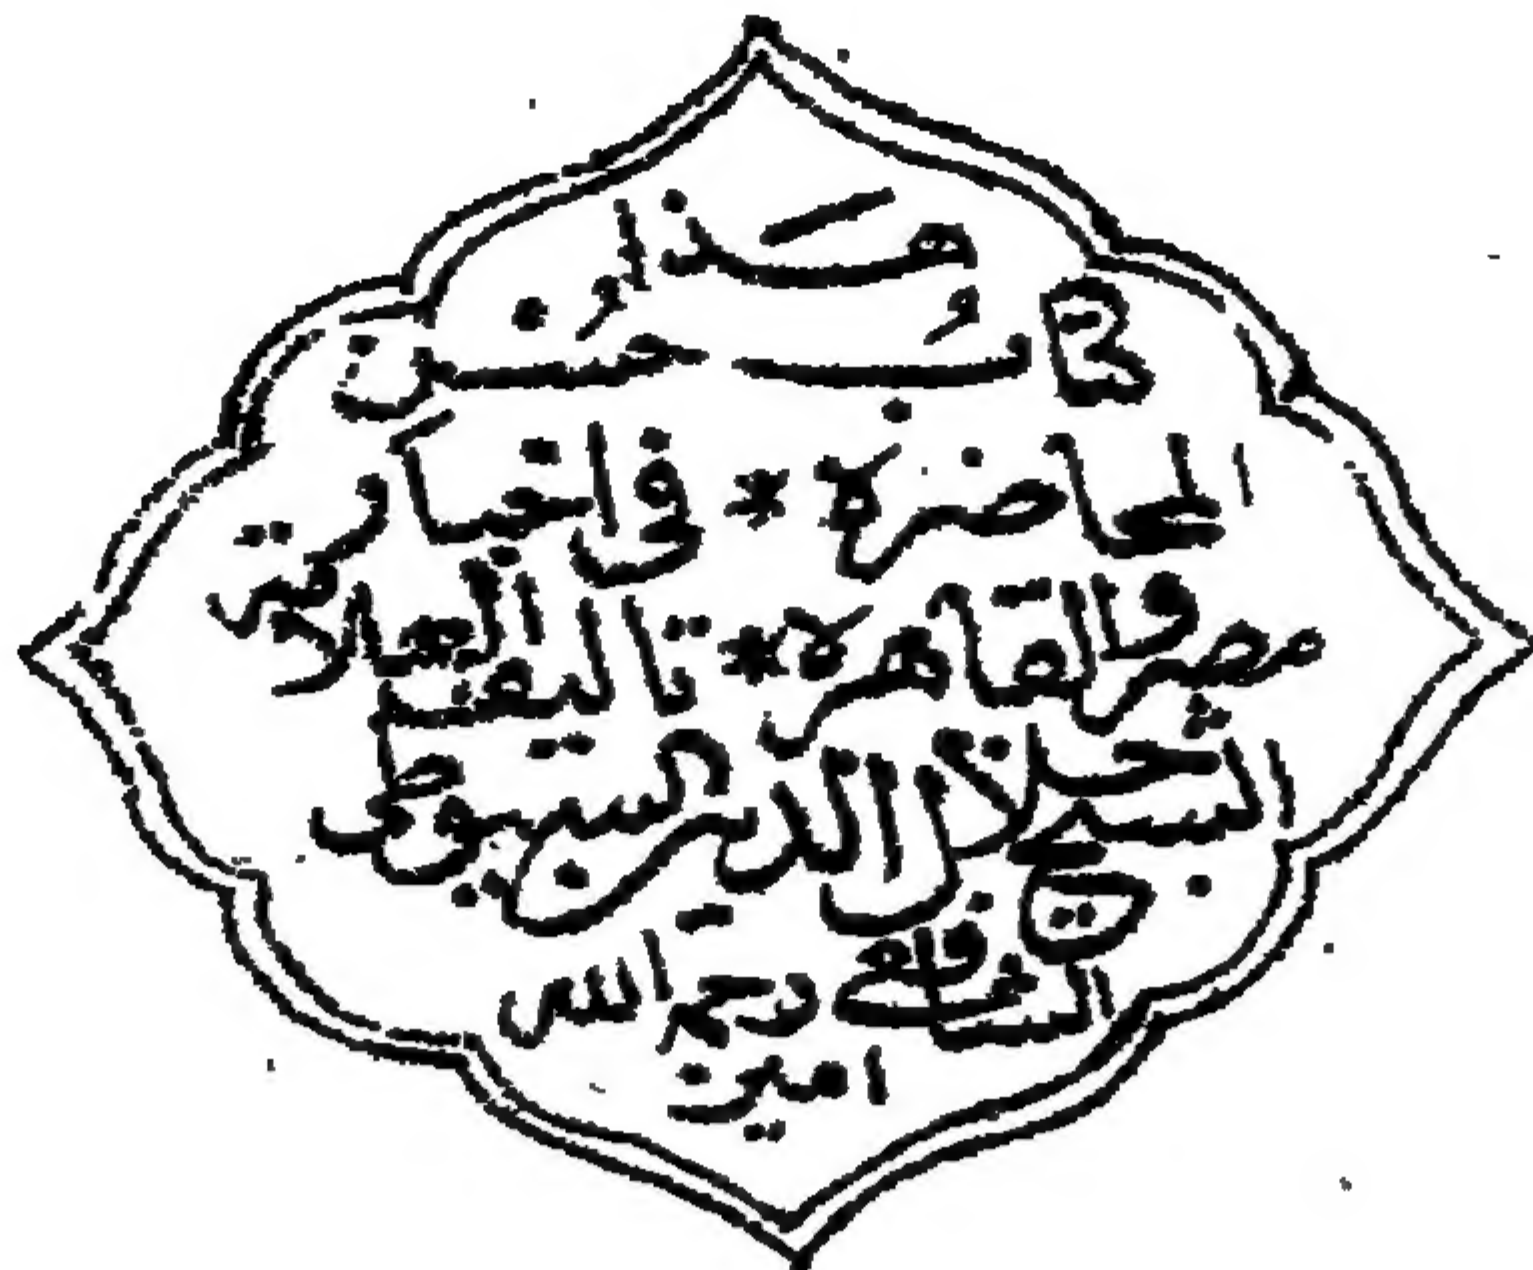 هَذا
كتابُ حُسن
المحاضره * فى اخبار
مصر والقاهره * تاليف العلامة
الشيخ جلال الدين السيوطى
الشافعى رحمه الله
امين